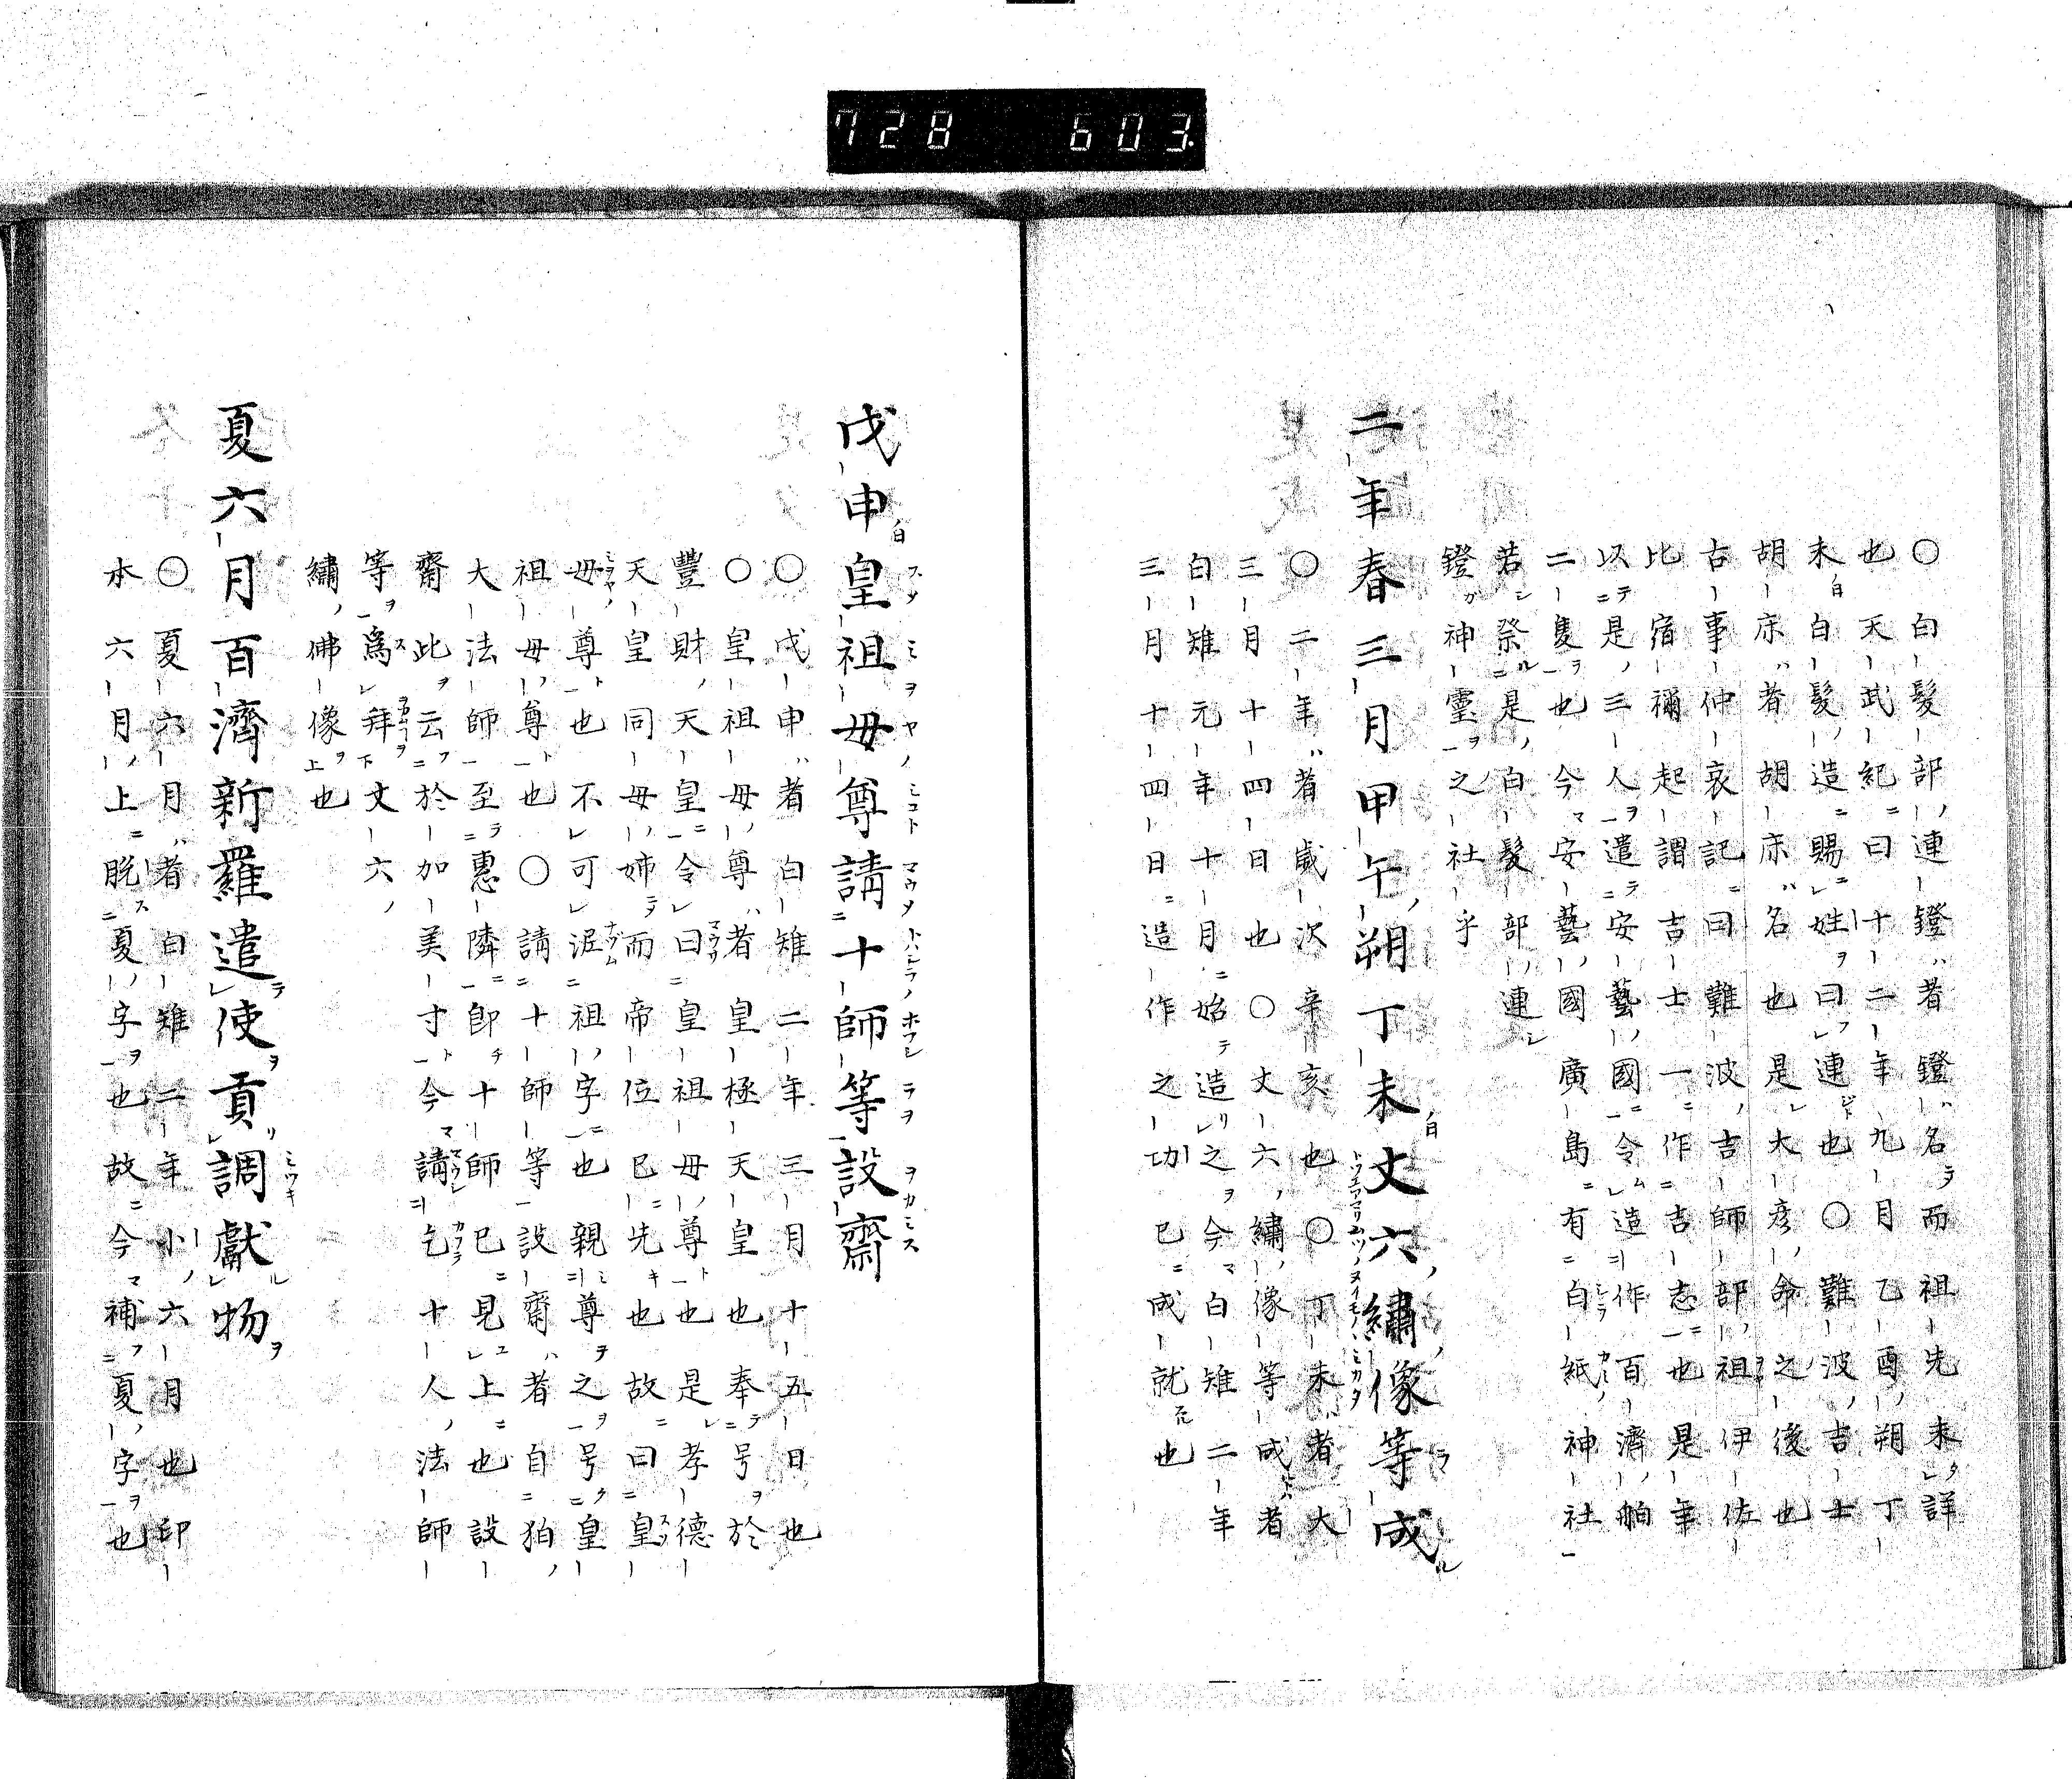 728 603.
〇白髮部連鐙者鐙名而祖先未詳
也天武紀曰十二年九月乙酉朔丁
未白髮造賜姓曰連也〇難波吉士
胡床者胡床名也是大彦命之後也
古事仲哀記曰難波吉師部祖伊佐
比宿禰起謂吉士一作吉志也是年
以是三人遣安藝國令造作百濟舶
二隻也今安藝國廣島有白紙神社
若祭是白髮部連
鐙神靈之社乎
二年春三月甲午朔丁未丈六繡像等成
〇二年者歲次辛亥也〇丁未者大
三月十四日也〇丈六繡像等成者
白雉元年十月始造之今白雉二年
三月十四日造作之功已成就也
戊申皇祖母尊請十師等設齋
〇戊申者白雉二年三月十五日也
〇皇祖母尊者皇極天皇也奉号於
豐財天皇令曰皇祖母尊也是孝德
天皇同母姉而帝位已先也故曰皇
母尊也不可泥祖字也親尊之号皇
祖母尊也〇請十師等設齋者自狛
大法師至惠隣即十師已見上也設
齋此云於加美寸今請乞十人法師
等爲拜丈六
繡佛像也
夏六月百濟新羅遣使貢調獻物
〇夏六月者白雉二年小六月也印
本六月上脱夏字也故今補夏字也